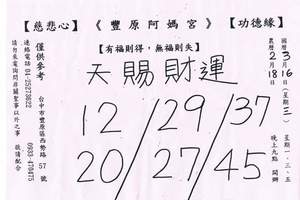 【慈悲心】《豐原阿媽宮》【功德緣】
【有福則得,無福則失】
國曆 3月16(星期三)
農曆 2月18日
星期一、三、五
晚上九點 開辦
天賜財運
12/29/37
20/27/45
僅供參考
台中市豐原區西勢路57號
連絡電話 04-25273822
0933-470475
請勿來電詢問非關聖事以外之事
敬請配合